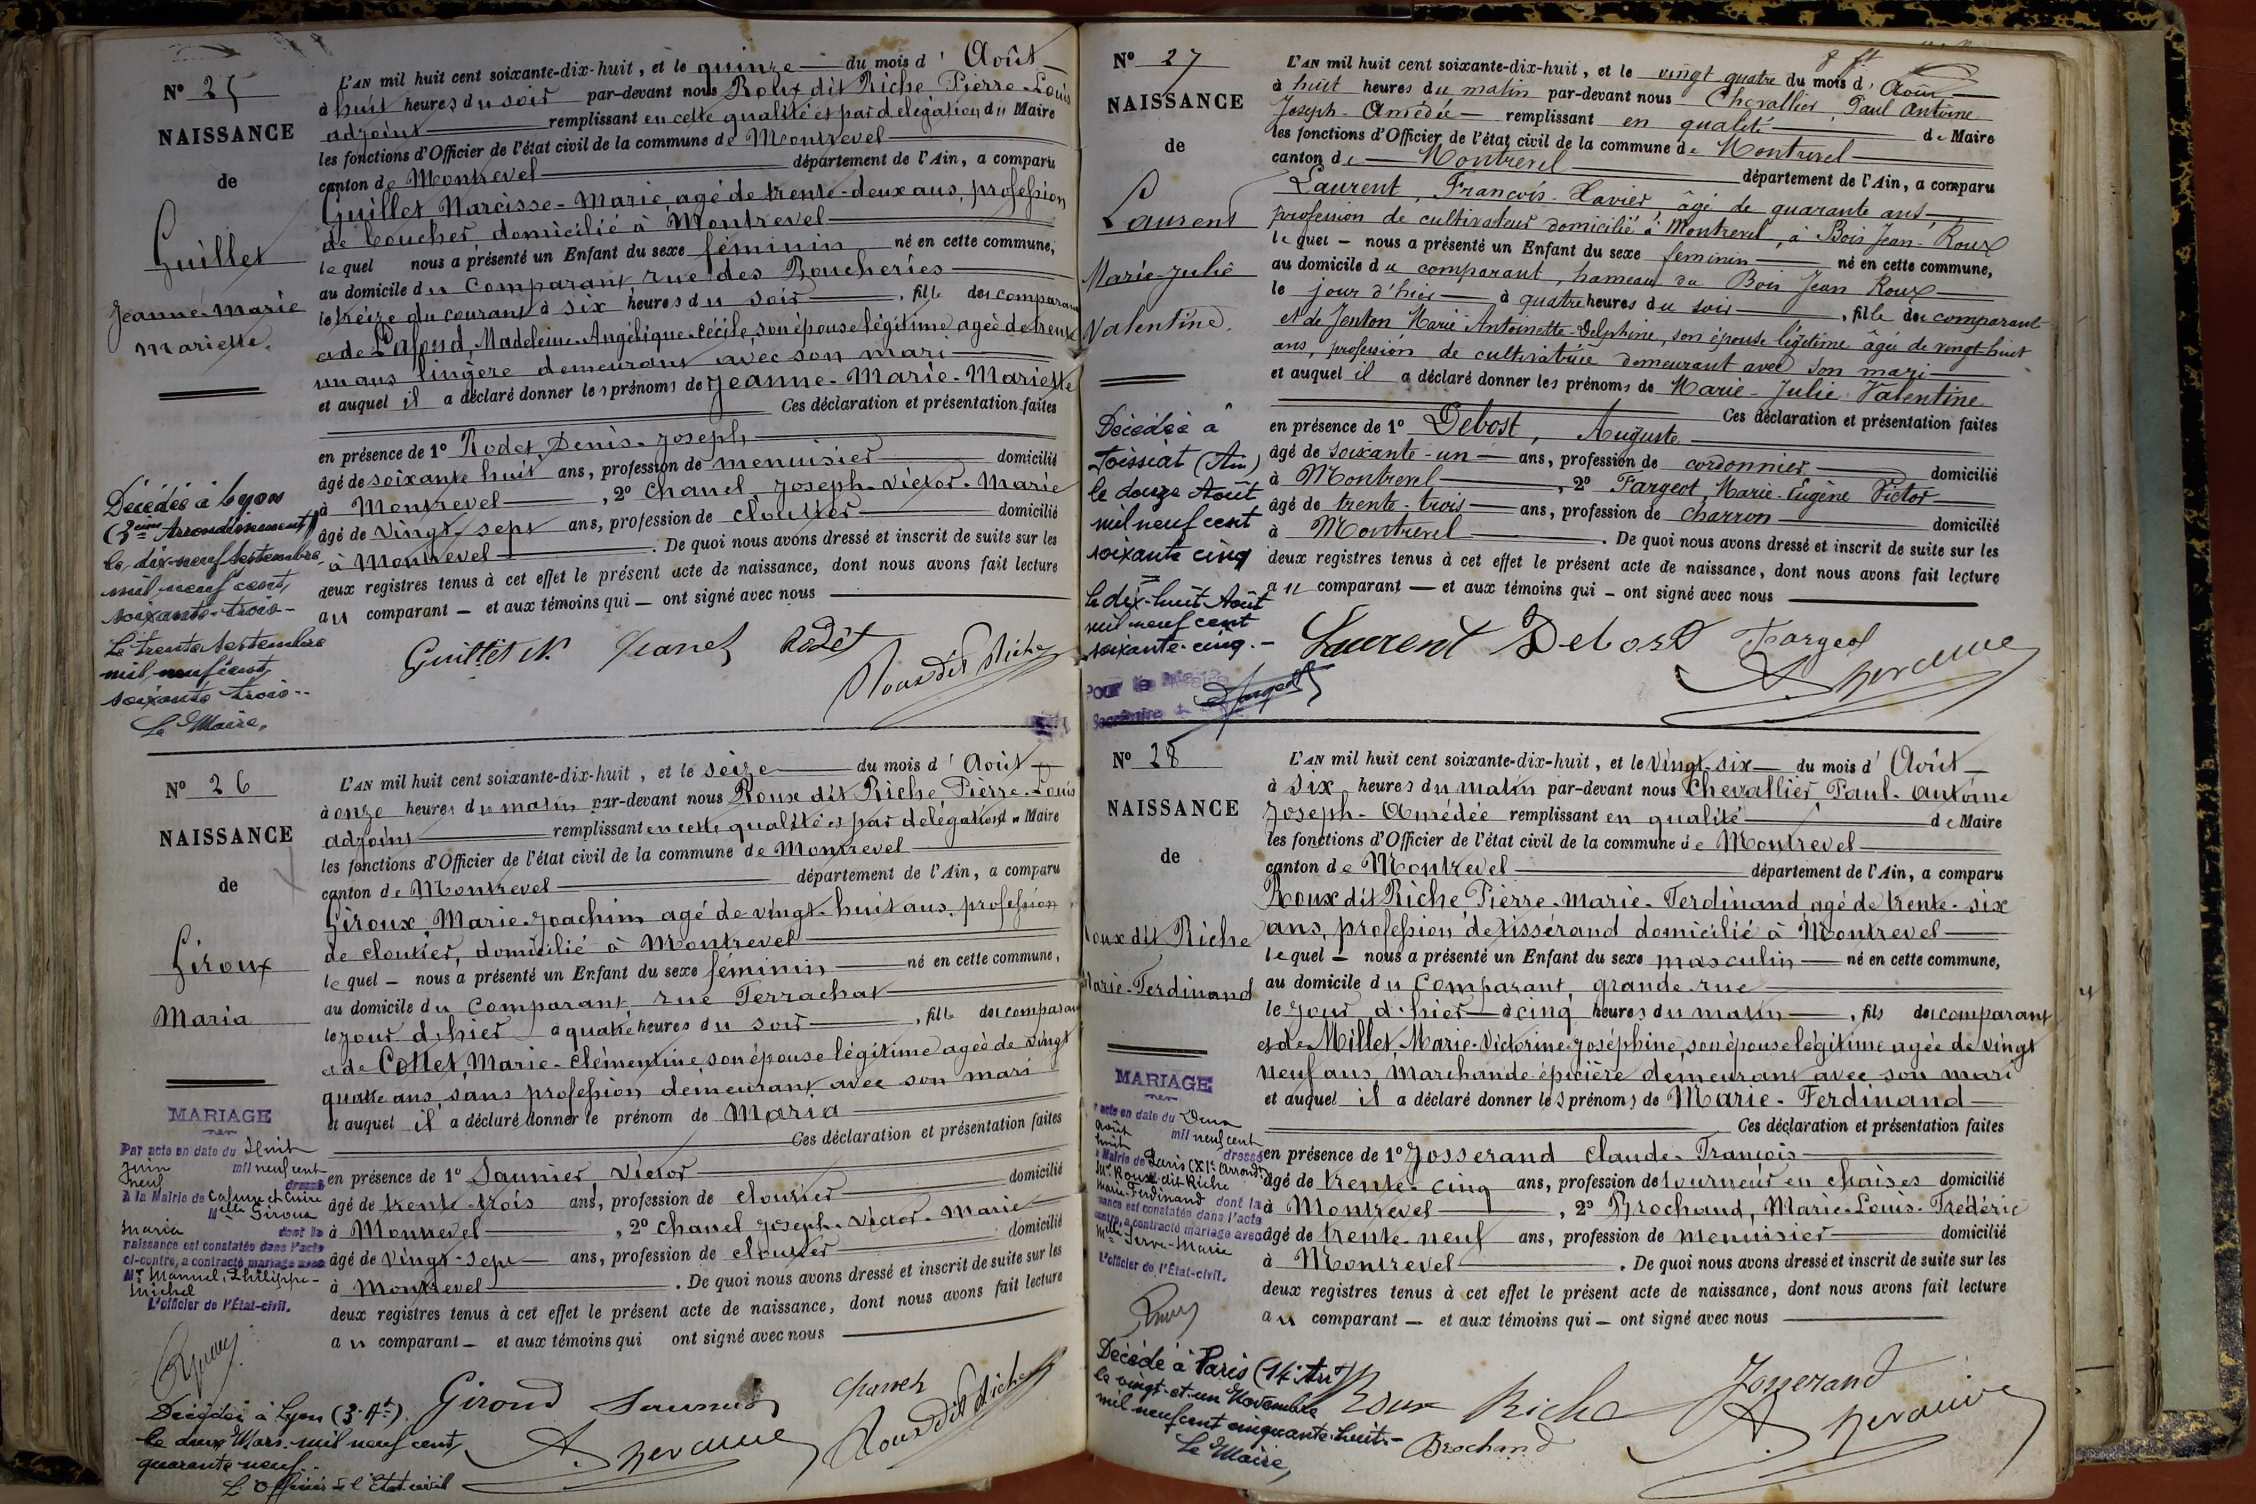 Nº 25
NAISSANCE
de
Guillet
Jeanne-Marie
Mariette.
L'AN mil huit cent soixante-dix-huit, et le quinze du mois d' Août
à huit heures du soir par-devant nous Roux dit Riche Pierre-Louis
adjoint remplissant en cette qualité et par délégation du Maire
les fonctions d'Officier de l'état civil de la commune de Montrevel
canton de Montrevel département de l'Ain, a comparu
Guillet Narcisse-Marie, agé de trente-deux ans, profession
de boucher domicilié à Montrevel
lequel nous a présenté un Enfant du sexe féminin né en cette commune,
au domicile du comparant, rue des Boucheries
le treize du courant à six heures du soir, fille des comparant
et de Lafond, Madeleine-Angélique-Cécile, son épouse légitime agée de trente
un ans lingère demeurant avec son mari
et auquel il a déclaré donner les prénoms de Jeanne-Marie-Mariette
Ces déclaration et présentation faites
en présence de 1º Rodet, Denis-Joseph
âgé de soixante huit ans, profession de menuisier domicilié
à Montrevel, 2º Chanel, Joseph-Victor-Marie
âgé de vingt-sept ans, profession de cloutier domicilié
à Montrevel. De quoi nous avons dressé et inscrit de suite sur les
deux registres tenus à cet effet le présent acte de naissance, dont nous avons fait lecture
au comparant – et aux témoins qui – ont signé avec nous
Guillet N. Chanel Rodet
Roux dit Riche
Décédée à Lyon
(3eme Arrondissement)
le dix-neuf septembre
mil neuf cent
soixante-trois-
Le trente septembre
mil neuf cent
soixante trois--
Le Maire,
Nº 26
NAISSANCE
de
Giroux
Maria
L'AN mil huit cent soixante-dix-huit, et le seize du mois d' Août
à onze heures du matin par-devant nous Roux dit Riche Pierre-Louis
adjoint remplissant en cette qualité et par délégation du Maire
les fonctions d'Officier de l'état civil de la commune de Montrevel
canton de Montrevel département de l'Ain, a comparu
Giroux, Marie-Joachim agé de vingt-huit ans, profession
de cloutier, domicilié à Montrevel
lequel – nous a présenté un Enfant du sexe féminin né en cette commune,
au domicile du comparant, rue Terrachat
le jour d'hier à quatre heures du soir, fille des comparant
et de Collet, Marie-Clémentine, son épouse légitime agée de vingt
quatre ans, sans profession demeurant avec son mari
et auquel il a déclaré donner le prénom de Maria
Ces déclaration et présentation faites
en présence de 1º Saunier Victor
âgé de trente-trois ans, profession de cloutier domicilié
à Montrevel, 2º Chanel Joseph-Victor-Marie
âgé de vingt-sept ans, profession de cloutier domicilié
à Montrevel. De quoi nous avons dressé et inscrit de suite sur les
deux registres tenus à cet effet le présent acte de naissance, dont nous avons fait lecture
au comparant – et aux témoins qui ont signé avec nous
Giroud Saunier Chanel
Roux dit Riche
MARIAGE
Par acte en date du Huit
Juin mil neuf cent
neuf dressé
à la Mairie de Caluire et Cuire
Melle Giroux
Maria dont la
naissance est constatée dans l'acte
ci-contre, a contracté mariage avec
Mr Manuel, Philippe-
Michel
L'officier de l'État-civil.
Décédée à Lyon (3e Art)
le deux Mars mil neuf cent
quarante neuf
L'Officier de l'État civil
Nº 27
NAISSANCE
de
Laurent
Marie-Julie
Valentine.
L'AN mil huit cent soixante-dix-huit, et le vingt quatre du mois d' Août
à huit heures du matin par-devant nous Chevallier, Paul Antoine
Joseph-Amédée – remplissant en qualité de Maire
les fonctions d'Officier de l'état civil de la commune de Montrevel
canton de Montrevel département de l'Ain, a comparu
Laurent, François-Xavier âgé de quarante ans,
profession de cultivateur domicilié à Montrevel, à Bois Jean-Roux
lequel – nous a présenté un Enfant du sexe féminin né en cette commune,
au domicile du comparant, hameau du Bois Jean Roux
le jour d'hier à quatre heures du soir, fille des comparant
et de Jenton Marie-Antoinette-Delphine, son épouse légitime âgée de vingt-huit
ans, profession de cultivatrice demeurant avec son mari
et auquel il a déclaré donner les prénoms de Marie-Julie Valentine
Ces déclaration et présentation faites
en présence de 1º Debost, Auguste
âgé de soixante-un ans, profession de cordonnier domicilié
à Montrevel, 2º Fargeot, Marie-Eugène Victor
âgé de trente-trois ans, profession de charron domicilié
à Montrevel. De quoi nous avons dressé et inscrit de suite sur les
deux registres tenus à cet effet le présent acte de naissance, dont nous avons fait lecture
au comparant – et aux témoins qui – ont signé avec nous
Laurent Debost Fargeot
Décédée à
Foissiat (Ain)
le douze Août
mil neuf cent
soixante cinq
le dix-huit Août
mil neuf cent
soixante-cinq.-
Pour le
Nº 28
NAISSANCE
de
Roux dit Riche
Marie-Ferdinand
L'AN mil huit cent soixante-dix-huit, et le vingt-six du mois d' Août
à six heures du matin par-devant nous Chevallier, Paul-Antoine
Joseph-Amédée remplissant en qualité de Maire
les fonctions d'Officier de l'état civil de la commune de Montrevel
canton de Montrevel département de l'Ain, a comparu
Roux dit Riche Pierre-Marie-Ferdinand, agé de trente-six
ans, profession de tissérand domicilié à Montrevel
lequel – nous a présenté un Enfant du sexe masculin né en cette commune,
au domicile du comparant, grande rue
le jour d'hier à cinq heures du matin, fils des comparant
et de Millet, Marie-Victorine-Joséphine, son épouse légitime agée de vingt
neuf ans, marchande épicière demeurant avec son mari
et auquel il a déclaré donner les prénoms de Marie-Ferdinand
Ces déclaration et présentation faites
en présence de 1º Josserand Claude-François
âgé de trente-cinq ans, profession de tourneur en chaises domicilié
à Montrevel, 2º Brochand, Marie-Louis-Frédéric
âgé de trente-neuf ans, profession de menuisier domicilié
à Montrevel. De quoi nous avons dressé et inscrit de suite sur les
deux registres tenus à cet effet le présent acte de naissance, dont nous avons fait lecture
au comparant – et aux témoins qui – ont signé avec nous
Roux Riche Josserand
Brochand
MARIAGE
acte en date du Deux
Août mil neuf cent
huit dressé
Mairie de Paris (XIe Arrondt)
Mr Roux dit Riche
Marie-Ferdinand dont la
naissance est constatée dans l'acte
contre, a contracté mariage avec
Melle Serve-Marie
L'officier de l'État-civil.
Décédé à Paris (14e Art)
le vingt-et-un Novembre
mil neuf cent cinquante-huit.-
Le Maire,